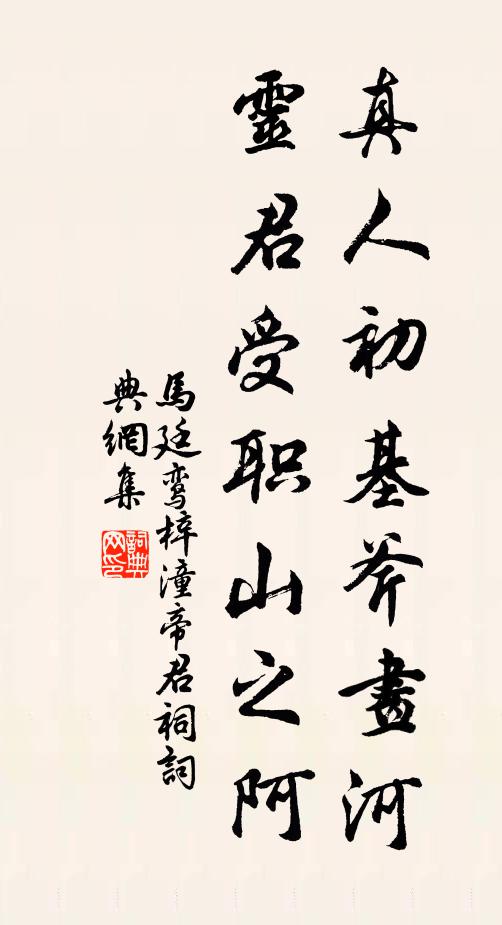 真人初基斧畫河
靈君受职山之阿
馬廷鸾梓潼帝君祠詞
典網集
詞典
网印